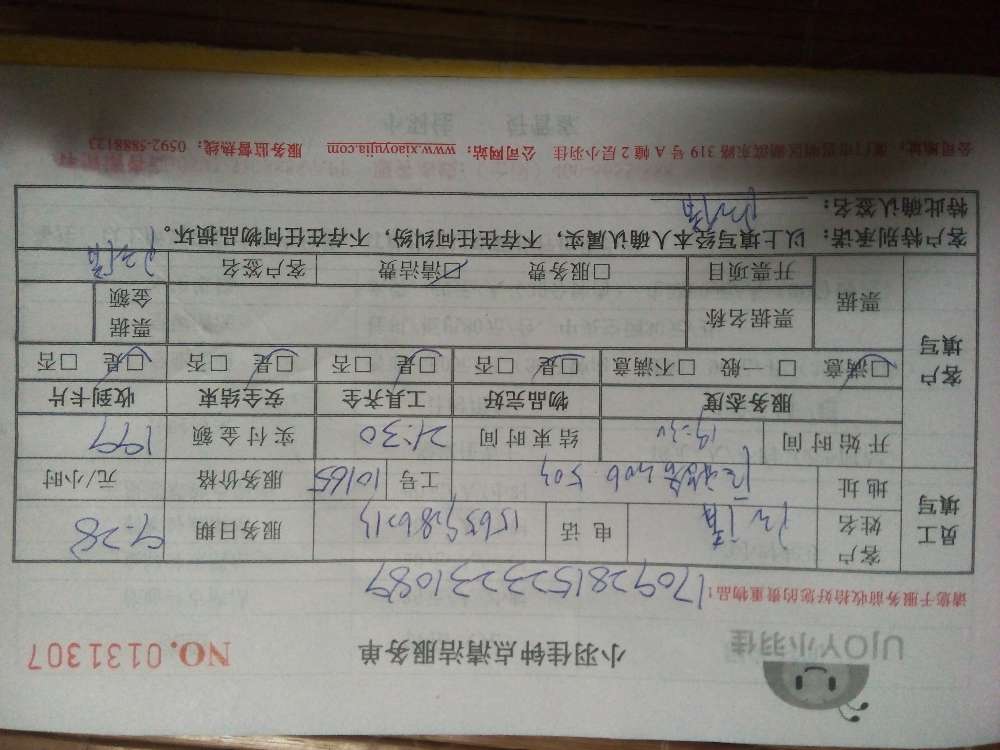 UJOY小羽佳
小羽佳钟点清洁服务单
NO.0131307
请您于服务前收拾好您的贵重物品!
17092815232231089
员工填写
客户姓名 电话 服务日期 9.28
地址 工号 10165 服务价格 元/小时
开始时间 19:30 结束时间 21:30 实付金额 199
客户填写
服务态度 物品完好 工具齐全 安全结束 收到卡片
☑满意 □一般 □不满意 ☑是 □否 ☑是 □否 ☑是 □否 ☑是 □否
票据 票据名称 票据金额
开票项目 □服务费 ☑清洁费 客户签名
客户特别承诺:以上填写经本人确认属实,不存在任何纠纷,不存在任何物品损坏。
特此确认签名:
公司网站:www.xiaoyujia.com 服务监督热线:0592-5888123